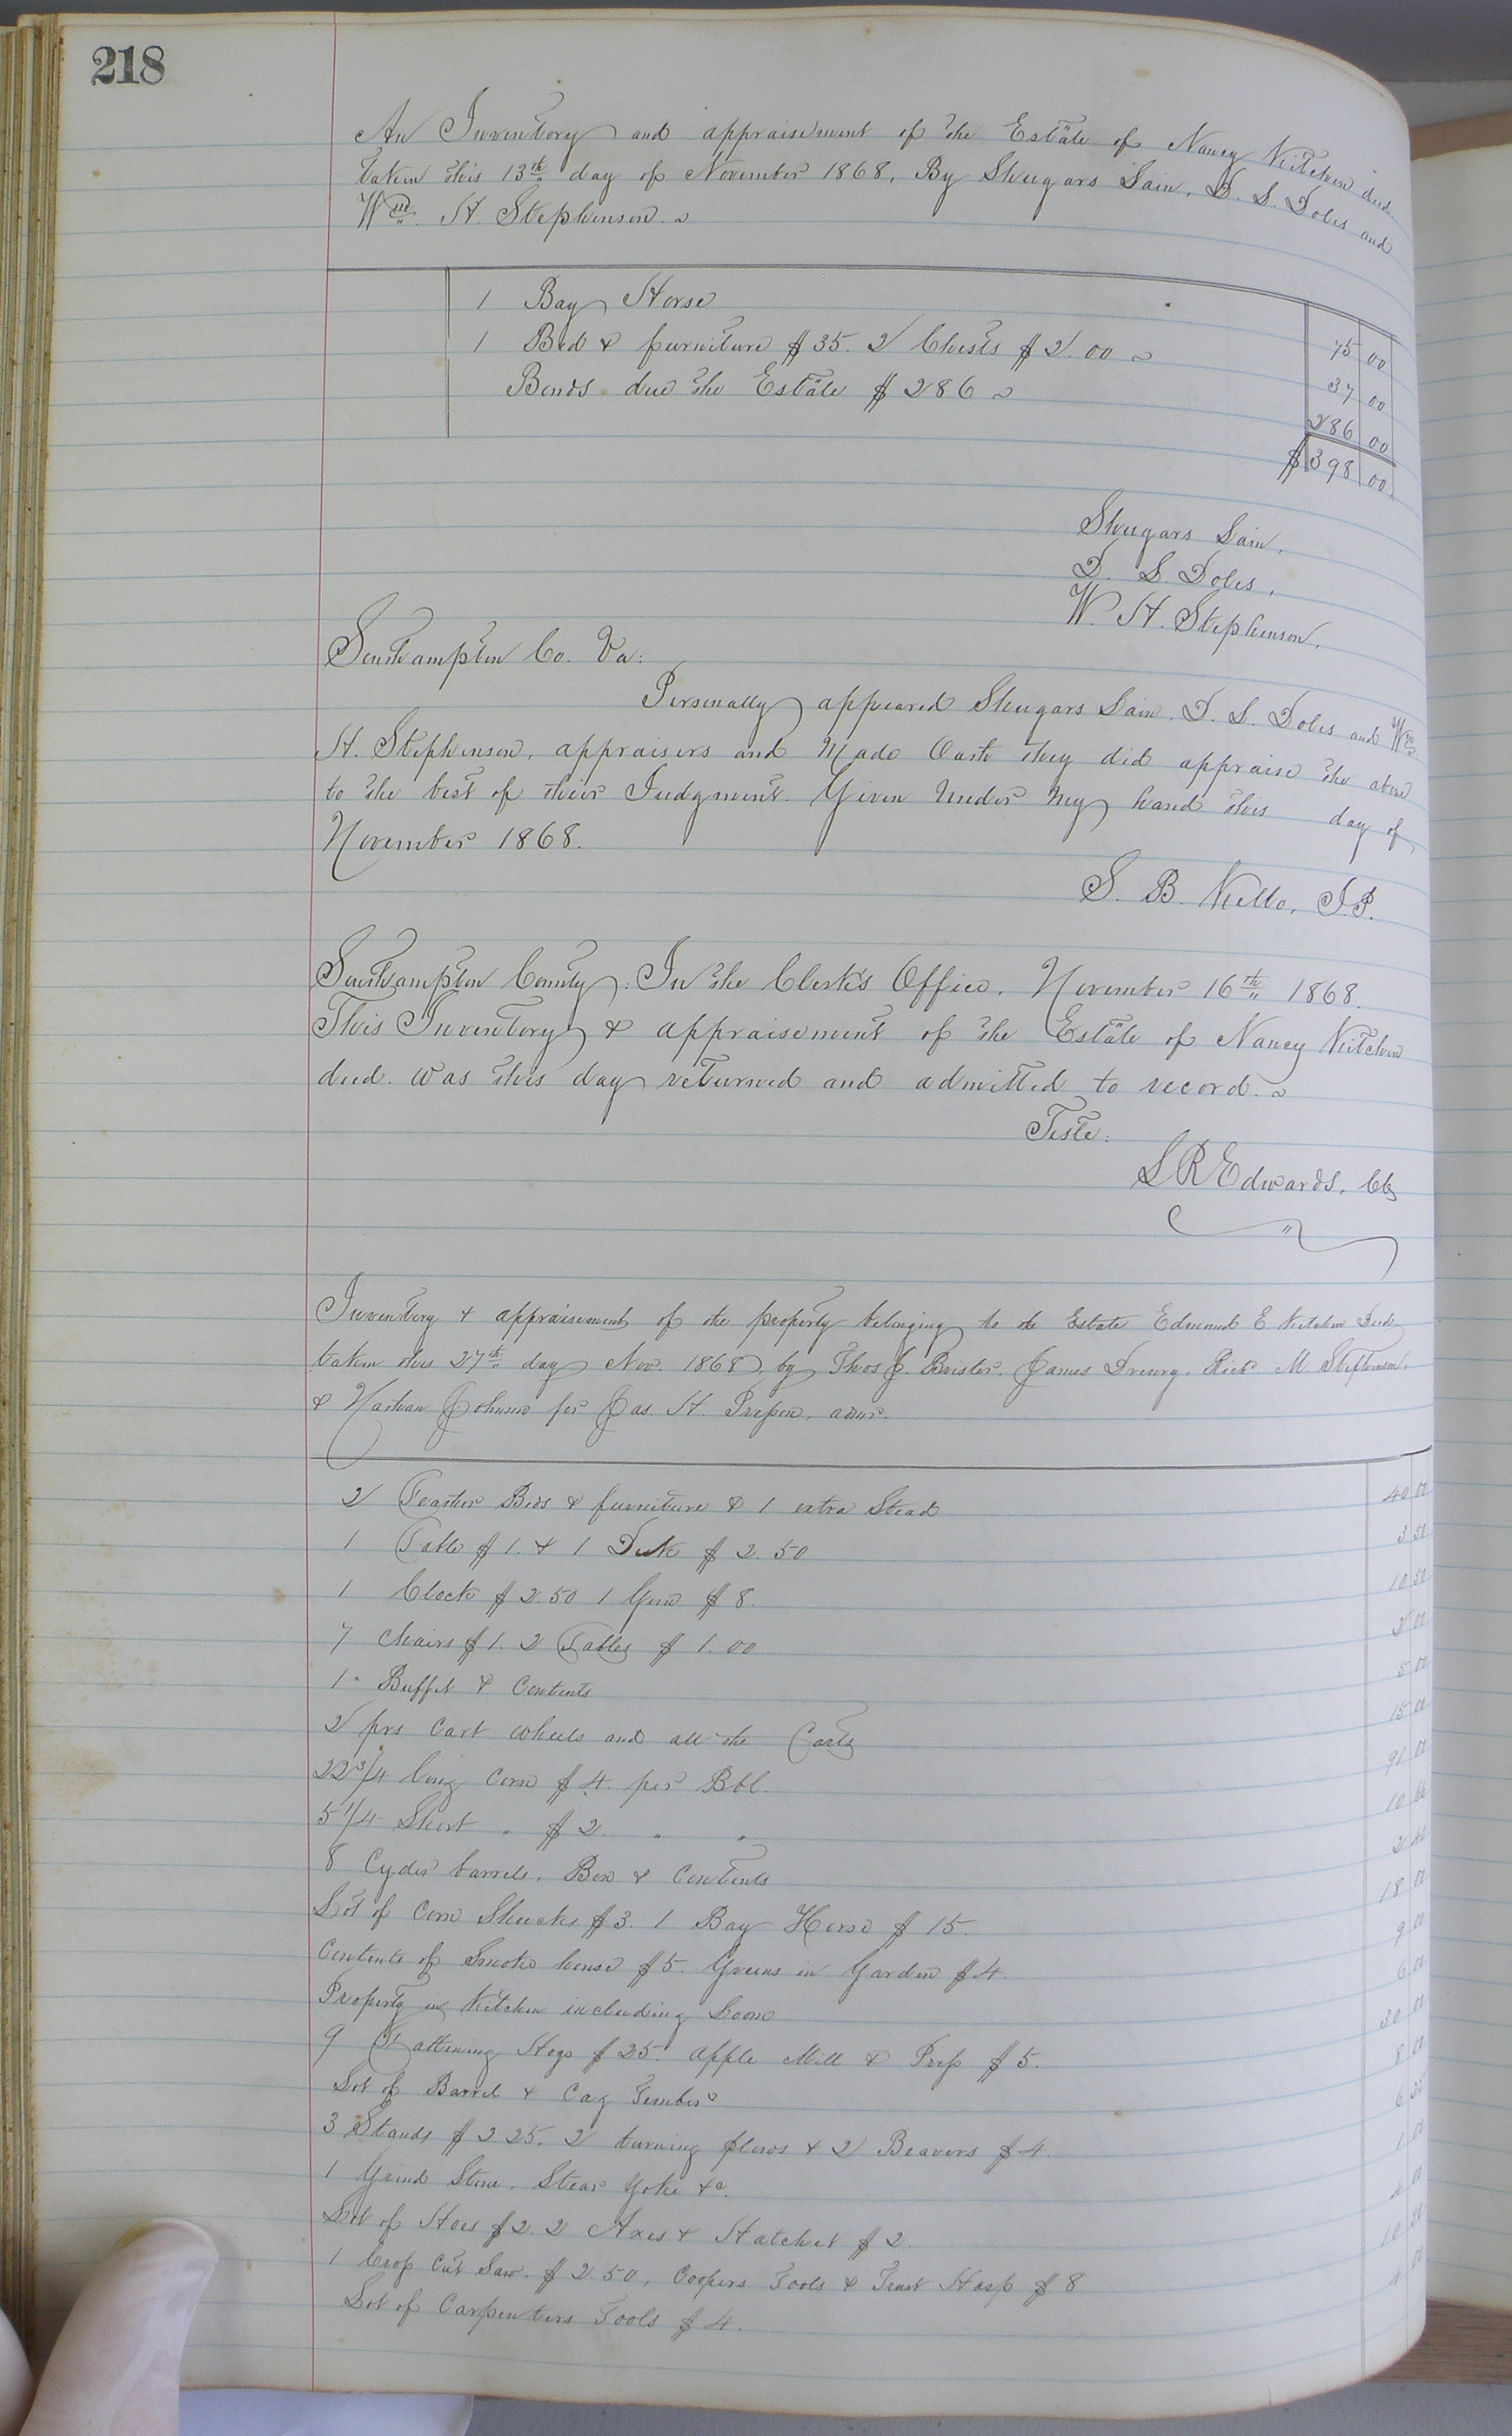 218
An Inventory and appraisement of the Estate of Nancy Kitchen decd.
taken this 13th day of November 1868, By Shugars Lain, D. S. Doles and
Wm. H. Stephenson.
1 Bay Horse 75 00
1 Bed & furniture $35. 2 Chests $2.00 37 00
Bonds due the Estate $286 286 00
$398 00
Shugars Lain,
D. S. Doles,
W. H. Stephenson.
Southampton Co. Va:
Personally appeared Shugars Lain, D. S. Doles and Wm
H. Stephenson, appraisers and Made Oath they did appraise the above
to the best of their Judgment. Given Under My hand this day of
November 1868.
S. B. Kello, J.P.
Southampton County: In the Clerk's Office, November 16th 1868.
This Inventory & appraisement of the Estate of Nancy Kitchen
decd. was this day returned and admitted to record.
Teste:
L R Edwards, Clk
Inventory & appraisement of the property belonging to the Estate Edmund E. Kitchen Decd
taken this 27th day Nov. 1868, by Thos J. Brister, James Drewry, Rick. M Stephenson,
& Nathan Johnson for Jas. H. admr.
2 Feather Beds & furniture & 1 extra Stead 40 00
1 Table $1. & 1 Desk $2.50 3 50
1 Clock $2.50 1 Gun $8. 10 50
7 chairs $1. 2 Tables $1.00 2 00
1 Buffet & Contents 5 00
2 prs Cart wheels and all the Carts 15 00
22 3/4 long Corn $4. per Bbl. 91 00
5 1/4 Short " $2. " " 10
8 Cyder barrels, Box & Contents 2
Lot of Corn Shucks $3. 1 Bay Horse $15. 18 00
Contents of Smoke house $5. Greens in Garden $4. 9 00
Property in Kitchen including Loom 6 00
9 Fattening Hogs $25. apple Mill & Press $5. 30 00
Lot of Barrel & Cag Timber 8 00
3 Stands $2 25. 2 turning plows & 2 Beavers $4. 6 25
1 Grind Stone, Stear Yoke &c. 1 00
Lot of Hoes $2. 2 Axes & Hatchet $2. 4 00
1 Crop Cut Saw. $2.50, Coopers Tools & Trust Hasp $8 10 50
Lot of Carpenters Tools $4. 4 00